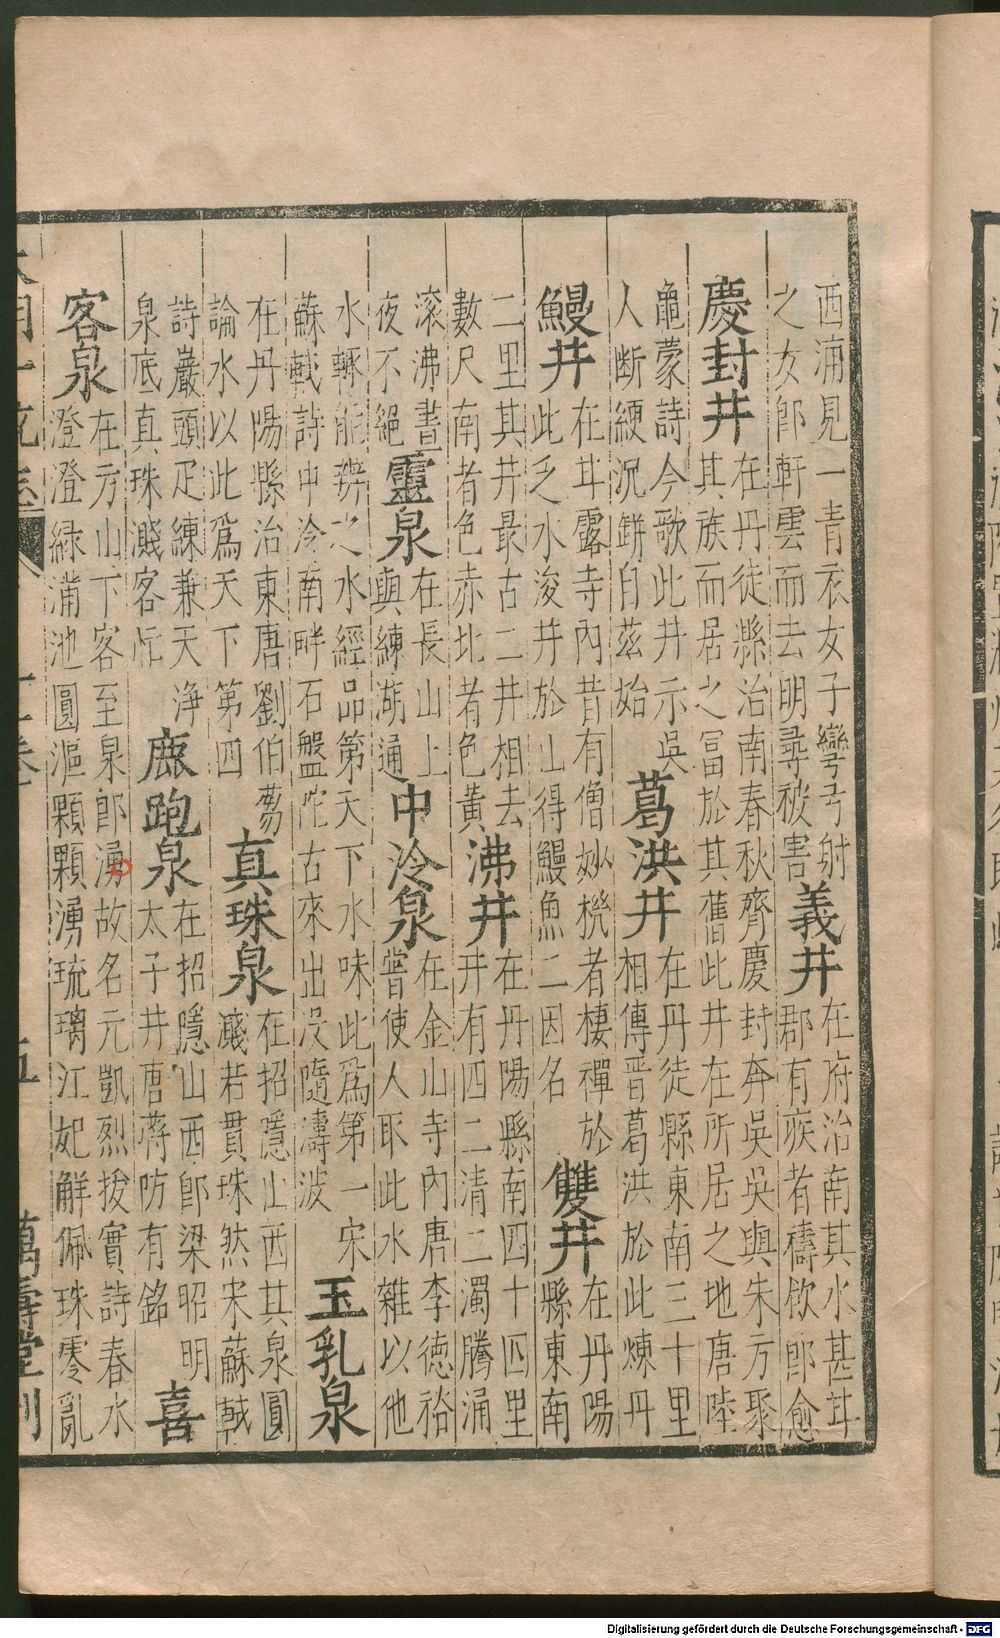 西浦見一青衣女子彎弓射
之女郎軒雲而去明尋被害
義井
在府治南其水甚甘
郡有疾者禱飲即愈
慶封井
在丹徒縣治南春秋齊慶封奔吳吳與朱方聚
其族而居之冨於其舊此井在所居之地唐陸
龜蒙詩今歌此井示吳
人断綆沉缾自茲始
葛洪井
在丹徒縣東南三十里
相傳晉葛洪於此煉丹
鰻井
在甘露寺內昔有僧妙機者棲禪於
此乏水浚井於山得鰻魚二因名
雙井
在丹陽
縣東南
二里其井最古二井相去
數尺南者色赤北者色黃
沸井
在丹陽縣南四十四里
井有四二清二濁騰涌
滚沸晝
夜不絕
靈泉
在長山上
與練湖通
中泠泉
在金山寺內唐李德裕
嘗使人取此水雜以他
水輒能辨之水經品第天下水味此爲第一宋
蘇軾詩中泠南畔石盤陀古來出没隨濤波
玉乳泉
在丹陽縣治東唐劉伯芻
論水以此爲天下第四
真珠泉
在招隱山西其泉圓
濺若貫珠然宋蘇軾
詩巖頭疋練兼天淨
泉底真珠濺客忙
鹿跑泉
在招隱山西即梁昭明
太子井唐蔣防有銘
喜
客泉
在方山下客至泉即湧故名元凱烈拔實詩春水
澄澄緑滿池圓漚顆顆湧琉璃江妃解佩珠零亂
大明一統志
五
萬壽堂刊
Digitalisierung gefördert durch die Deutsche Forschungsgemeinschaft - DFG